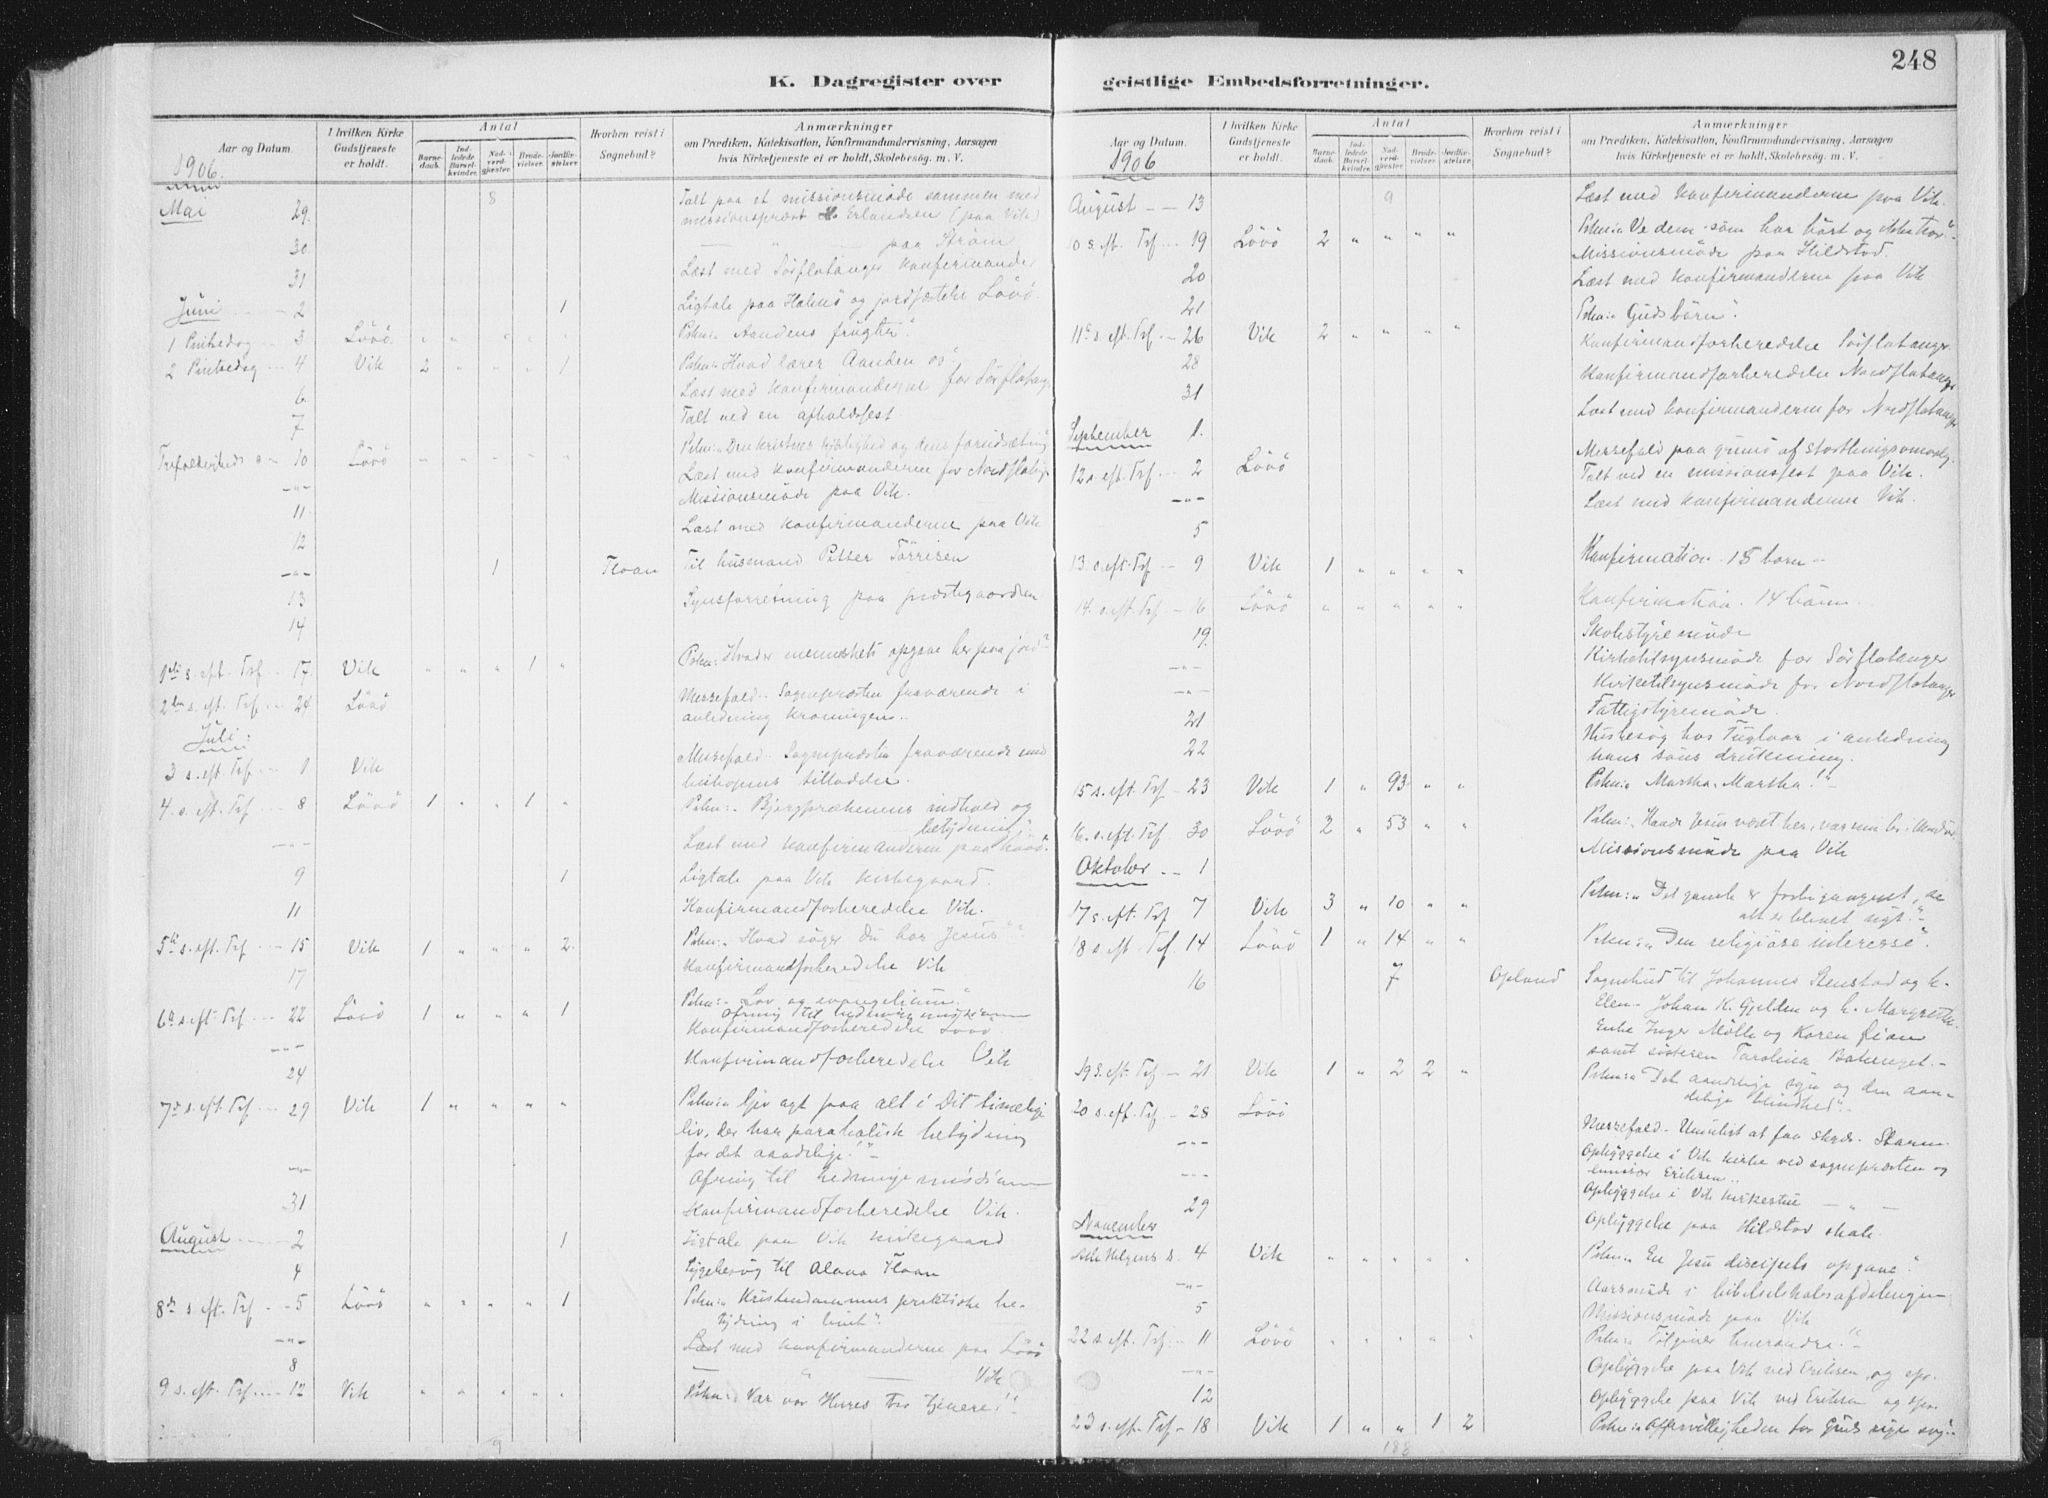 248
K. Dagregister over
geistlige Embedsforretninger.
Aar og Datum.
I hvilken Kirke Gudstjeneste er holdt.
Antal
Barnedaab.
Indledede Barselkvinder.
Nadverdgjæster
Brudevielser.
Jordfæstelser.
Hvorhen reist i Sognebud?
Anmærkninger
om Prædiken, Katekisation, Konfirmandundervisning, Aarsagen
hvis Kirketjeneste ei er holdt, Skolebesög. m. V.
1906.
8
Mai 29. Talt paa et missionsmöde sammen med
missionsprest Erlandsen (paa Vik)
30. — " — paa Ström
31 Læst med Sörflatanger konfirmander
Juni 2 1 Ligtale paa Halmö og jordfæstelse Lövö.
1 Pintsedag 3 Lövö " " " " " Prkn: "Aandens frugter"
2 Pintsedag 4 Vik 2 " " " 1 Prkn: "Hvad lærer Aanden os"
6. Læst med konfirmanderne for Sörflatang.
7 Talt ved en afholdsfest.
Trefoldigheds s 10 Lövö " " " " " Prkn: "Den kristnes kjærlighed og dens forudsætning
-"- Læst med konfirmanderne for Nordflatang.
11. Missionsmöde paa Vik.
12 Læst med konfirmanderne paa Vik
-"- 1 Floan Til husmand Petter Törrisen
13 Synsforretning paa prestegaarden
14
1ste s. eft. Tref. 17. Vik " " " 1 " Prkn: "Hvad er menneskets opgave her paa jord"
2den s. eft. Tref. 24 Lövö Messefald. Sognepresten fraværende i
anledning kroningen.
Juli
3 s. eft. Tref. 1 Vik Messefald. Sognepresten fraværende med
biskopens tilladelse.
4. s. eft. Tref. 8 Lövö 1 " " 1 " Prkn: "Bjergprækenens indhold og
betydning"
-"- Læst med konfirmanderne paa Lövö.
9 1 Ligtale paa Vik kirkegaard.
11 Konfirmandforberedelse Vik.
5te s. eft. Tref 15 Vik 1 " " " 2 Prkn: "Hvad söger du hos Jesus"
17 Konfirmandforberedelse Vik
6te s. eft. Tref. 22 Lövö 1 " " " 1 Prkn: "Lov og evangelium."
Ofring til hedningemissionen
-"- Konfirmandforberedelse Lövö.
24 Konfirmandforberedelse Vik
7de s. eft. Tref. 29 Vik 1 " " " " Prkn: "Giv agt paa alt i Dit timelige
liv, der har parabolisk betydning
for det aandelige!"
-"- Ofring til hedningemissionen
31 Konfirmandforberedelse Vik.
August 2 1 Ligtale paa Vik kirkegaard
4 Sygebesög til Floan
8de s. eft. Tref. 5 Lövö " " " " 1 Prkn: "Kristendommens praktiske be-
tydning i livet"
-"- Læst med konfirmanderne paa Lövö
8 — " — Vik
9 s. eft. Tref. 12 Vik " " " " " Prkn: "Vær vor Herres tro tjenere!"
9
Aar og Datum.
I hvilken Kirke Gudstjeneste er holdt.
Antal
Barnedaab.
Indledede Barselkvinder.
Nadverdgjæster
Brudevielser.
Jordfæstelser.
Hvorhen reist i Sognebud?
Anmærkninger
om Prædiken, Katekisation, Konfirmandundervisning, Aarsagen
hvis Kirketjeneste ei er holdt, Skolebesög. m. V.
1906
9
August 13 Læst med konfirmanderne paa Vik.
10 s. eft. Tref. 19 Lövö 2 " " " " Prkn: "Ve dem som har hört og
20 Missionsmöde paa Hildstad.
21 Læst med konfirmanderne paa Vik
11te s. eft. Tref. 26 Vik 2 " " " " Prkn: "Guds börn".
28 Konfirmandforberedelse Sörflatanger
31 Konfirmandforberedelse Nordflatanger
September 1. Læst med konfirmanderne for Nordflatanger
12 s. eft. Tref. 2 Lövö Messefald paa grund af stortingsvalg.
-"- Talt ved en missionsfest paa Vik.
5 Læst med konfirmanderne Vik.
13. s. eft. Tref. 9 Vik 1 " " " " Konfirmation. 15 born
14. s. eft. Tref. 16 Lövö " " " " " Konfirmation. 14 börn
19. Skolestyremöde
-"- Kirketilsynsmöde for Sörflatanger
-"- Kirketilsynsmöde for Nordflatanger
21 Fattigstyremöde.
22 Husbesög hos Fuglaar i anledning
hans söns drukning.
15 s. eft. Tref 23 Vik 1 " 93 " " Prkn: "Martha, Martha!"
16. s. eft. Tref. 30 Lövö 2 " 53 " " Prkn: "Havde Jesus været her, var min br.
Oktober 1 Missionsmöde paa Vik
17 s. eft. Tref 7 Vik 3 " 10 " " Prkn: "Det gamle er forbigangent, se
alt er blevet nyt."
18 s. eft. Tref 14 Lövö 1 " 14 " " Prkn: "Den religiöse interesse".
16 7 Opland Sognebud til Johannes Stenstad og h.
Elen. Johan K. Gjelden og h. Margrethe.
Enke Inger Mölle og Karen
samt sösteren
19 s. eft. Tref. 21 Vik 1 " 2 2 " Prkn: "Det aandelige syn og den aan-
delige blindhed".
20 s. eft. Tref 28 Lövö Messefald. Umulist at faa skyds. Storm.
-"- Opbyggelse i Vik kirke ved sognepresten og
emissær Eriksen.
-"- Opbyggelse i Vik kirkestue — " —
29 Opbyggelse paa Hildstad skole
November
Alle Helgens s. 4 Vik " " " " " Prkn: "En Jesu discipels opgave".
-"- Aarsmöde i bibelselskabsafdelingen
5 Missionsmöde paa Vik
22 s. eft. Tref. 11 Lövö " " " " " Prkn: "Tilgiver hverandre!"
-"- Opbyggelse paa Vik ved Eriksen og spr.
12 Opbyggelse paa Vik ved Eriksen og spr.
23 s. eft. Tref 18 Vik 1 " " 1 2 Prkn: "Offervilligheden for Guds riges
188